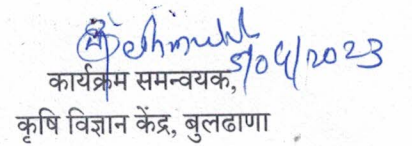 5/04/2023
कार्यक्रम समन्वयक,
कृषि विज्ञान केंद्र, बुलढाणा